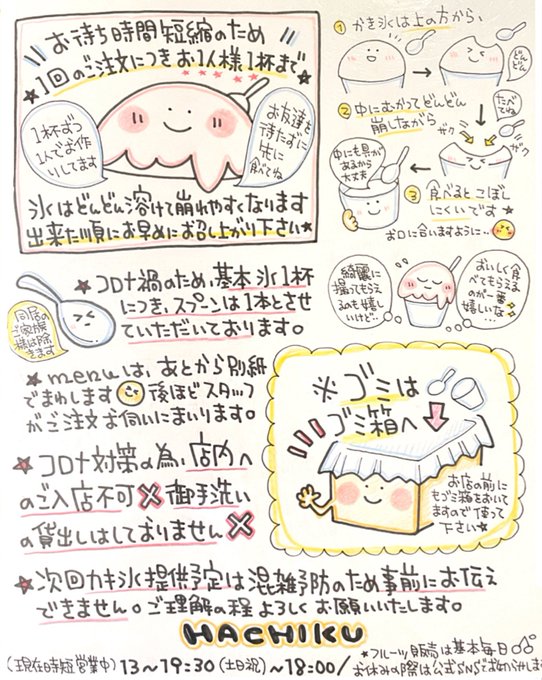 お待ち時間短縮のため
★1回のご注文につきお1人様1杯まで★
1杯ずつ
1人でお作
りしてます
お友達を
待たずに
先に
食べてね
氷はどんどん溶けて崩れやすくなります
出来た順にお早めにお召し上がり下さい★
① かき氷は上の方から、
どんどん
たべてね
② 中にむかってどんどん
崩しながら
ザク
ザク
中にも具が
あるから
大丈夫
③ 食べるとこぼし
にくいです★
お口に合いますように…
綺麗に
撮ってもらえ
るのも嬉し
いけど…
おいしく食
べてもらえる
のが一番
嬉しいな…
★コロナ禍のため、基本氷1杯
につき、スプーンは1本とさせ
ていただいております。
同居の
ご家族
様は除
きます
★menuは、あとから別紙
でまわします 後ほどスタッフ
がご注文お伺いにまいります。
※ゴミは
ゴミ箱へ
お店の前に
もゴミ箱をおいて
ますので使って
下さい★
★コロナ対策の為、店内へ
のご入店不可✖御手洗い
の貸出しはしておりません✖
★次回カキ氷提供予定は混雑予防のため事前にお伝え
できません。ご理解の程よろしくお願いいたします。
HACHIKU
(現在時短営業中) 13〜19:30 (土日祝)〜18:00/
★フルーツ販売は基本毎日
お休みの際は公式SNSでお知らせしま